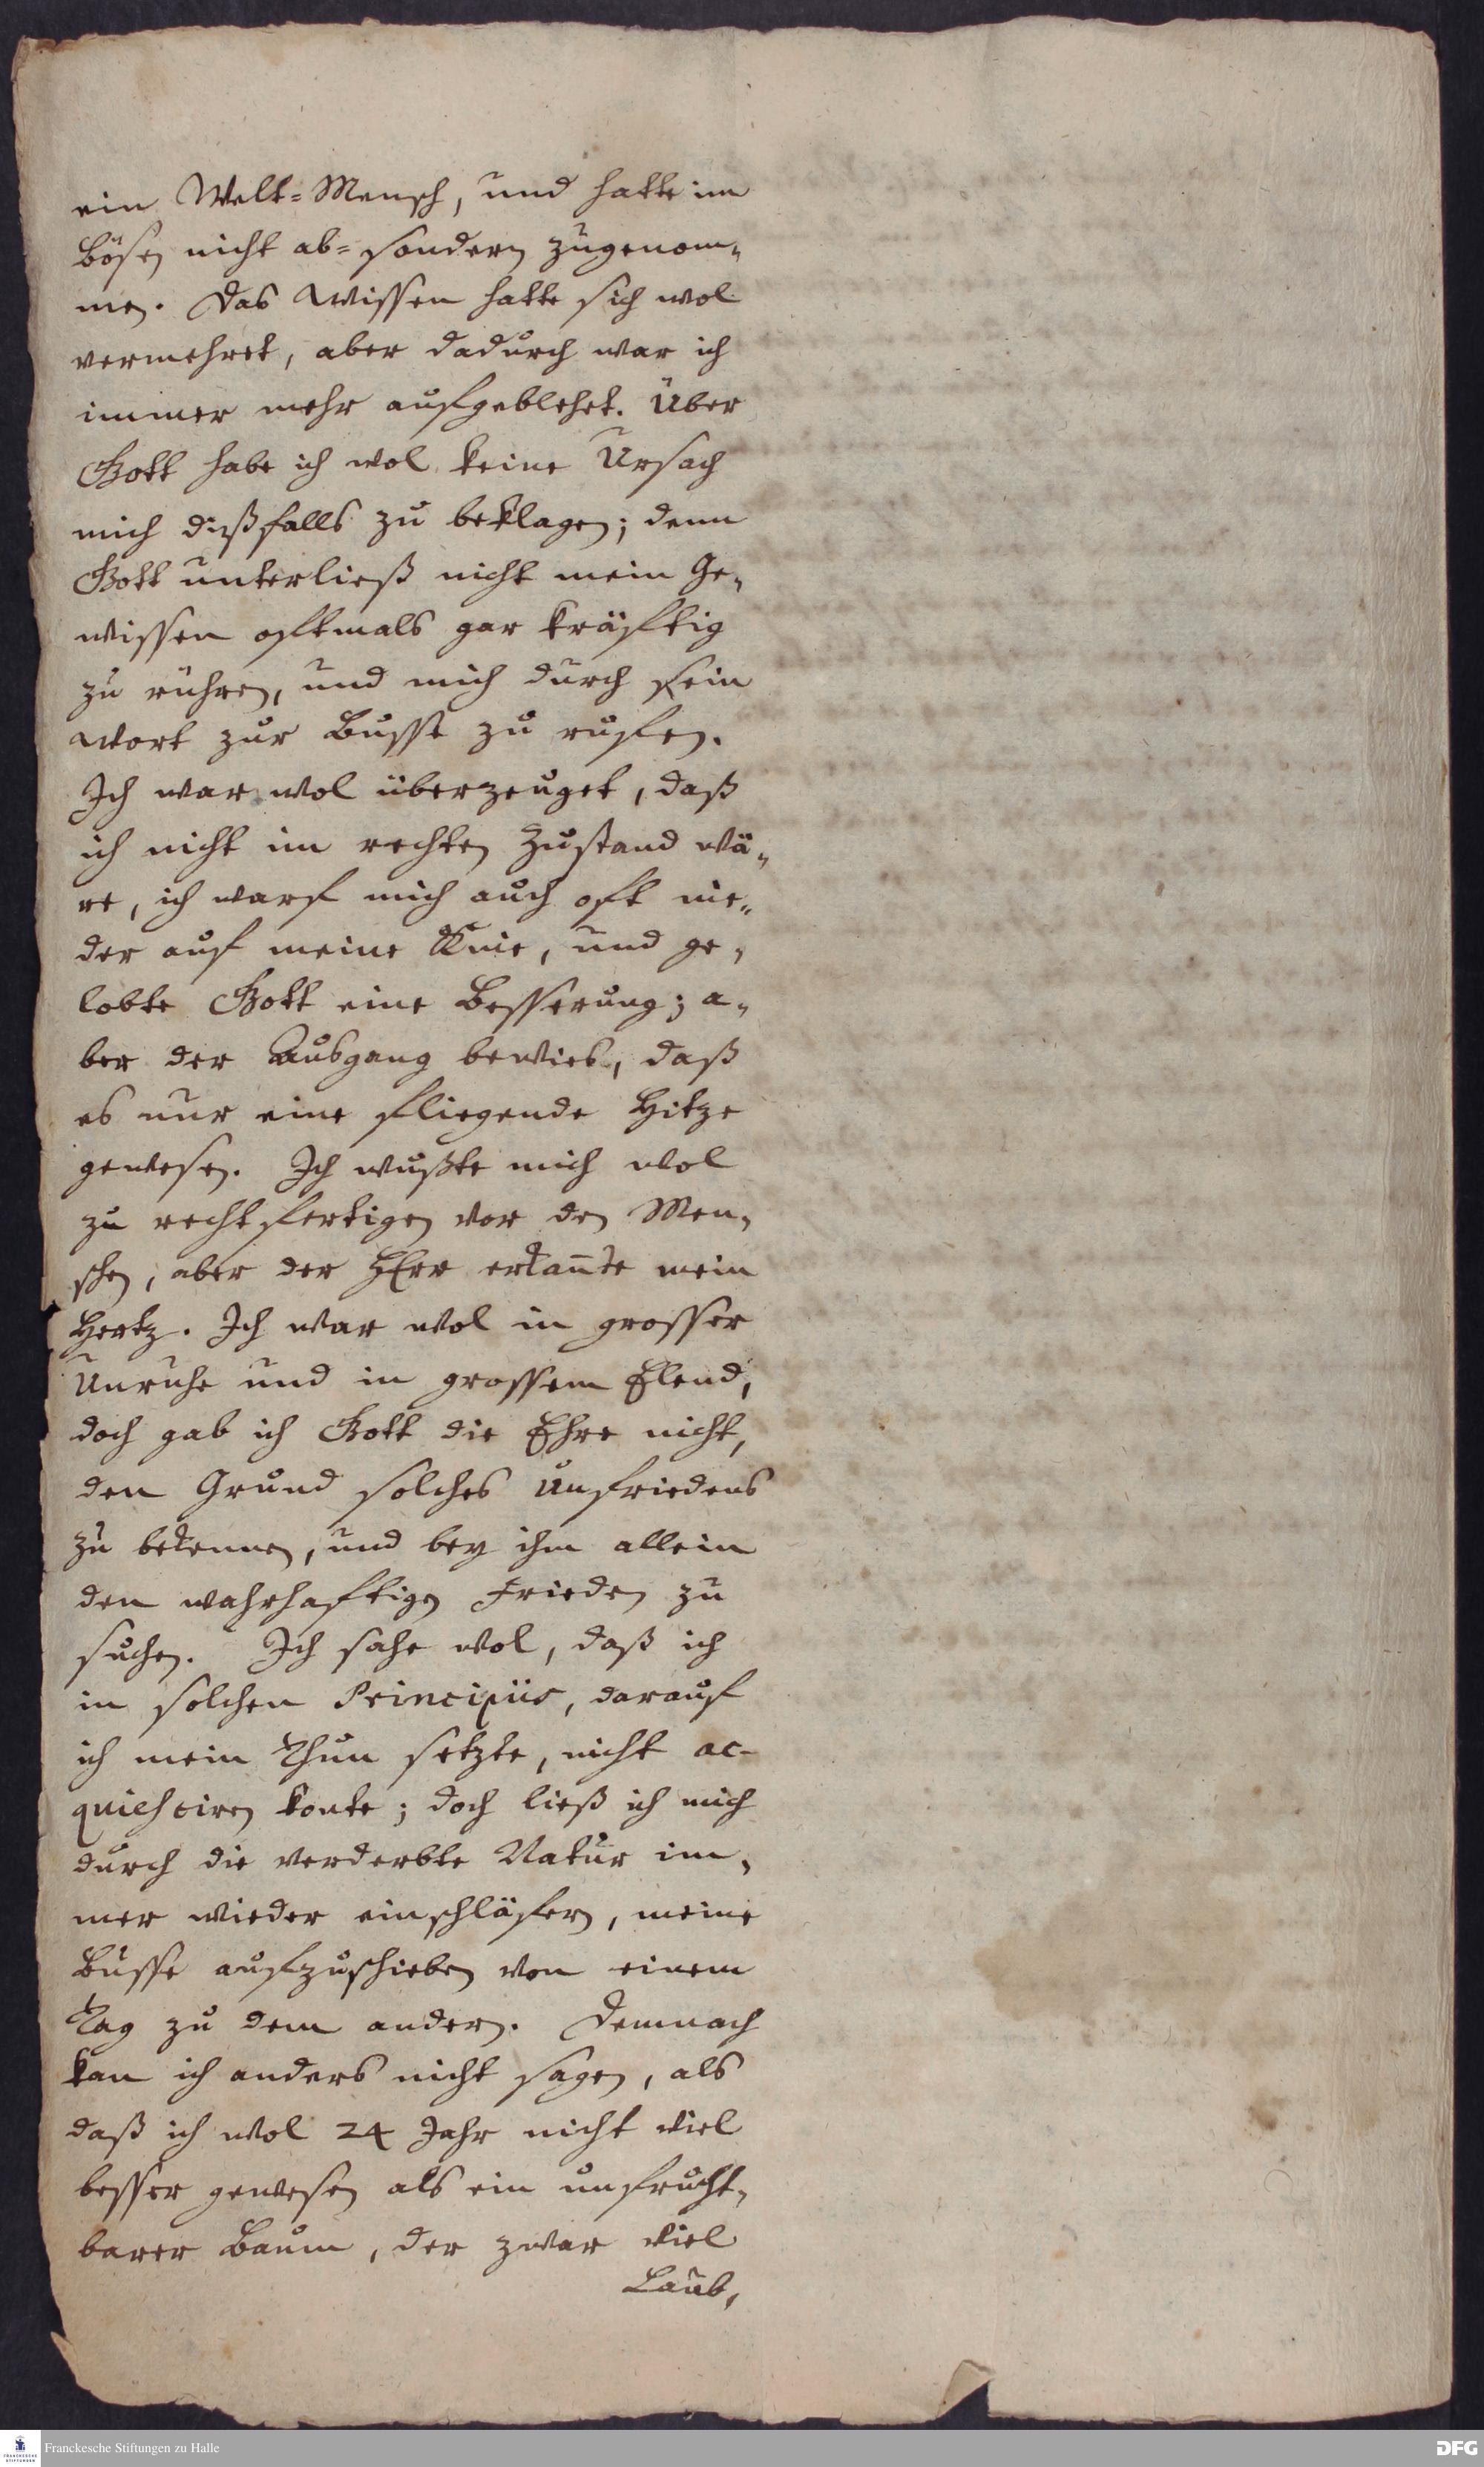 ein Welt=Mensch, und hatte im
Bösen nicht ab= sondern zugenom-
men. Das Wissen hatte sich wol
vermehret, aber dadurch war ich
immer mehr aufgeblehet. Über
Gott habe ich wol keine Ursach
mich dißfalls zu beklagen; denn
Gott unterließ nicht mein Ge-
wissen oftmals gar kräftig
zu rühren, und mich durch sein
Wort zur Busse zu rufen.
Ich war wol überzeuget, daß
ich nicht im rechten Zustand wä-
re, ich warf mich auch oft nie-
der auf meine Knie, und ge-
lobte Gott eine Besserung; a-
ber der Ausgang bewies, daß
es nur eine fliegende Hitze
gewesen. Ich wußte mich wol
zu rechtfertigen vor den Men-
schen, aber der HErr erkan̄te mein
Hertz. Ich war wol in grosser
Unruhe und in grossem Elend,
doch gab ich Gott die Ehre nicht,
den Grund solches Unfriedens
zu bekennen, und bey ihm allein
den wahrhaftigen Frieden zu
suchen. Ich sahe wol, daß ich
in solchen Principiis, darauf
ich mein Thun setzte, nicht ac-
quiesciren konte; doch ließ ich mich
durch die verderbte Natur im-
mer wieder einschläfern, meine
Busse aufzuschieben von einem
Tag zu dem andern. Demnach
kan ich anders nicht sagen, als
daß ich wol 24 Jahr nicht viel
besser gewesen als ein unfrucht-
barer Baum, der zwar viel
Laub,
Franckesche Stiftungen zu Halle
FRANCKESCHE STIFTUNGEN
DFG